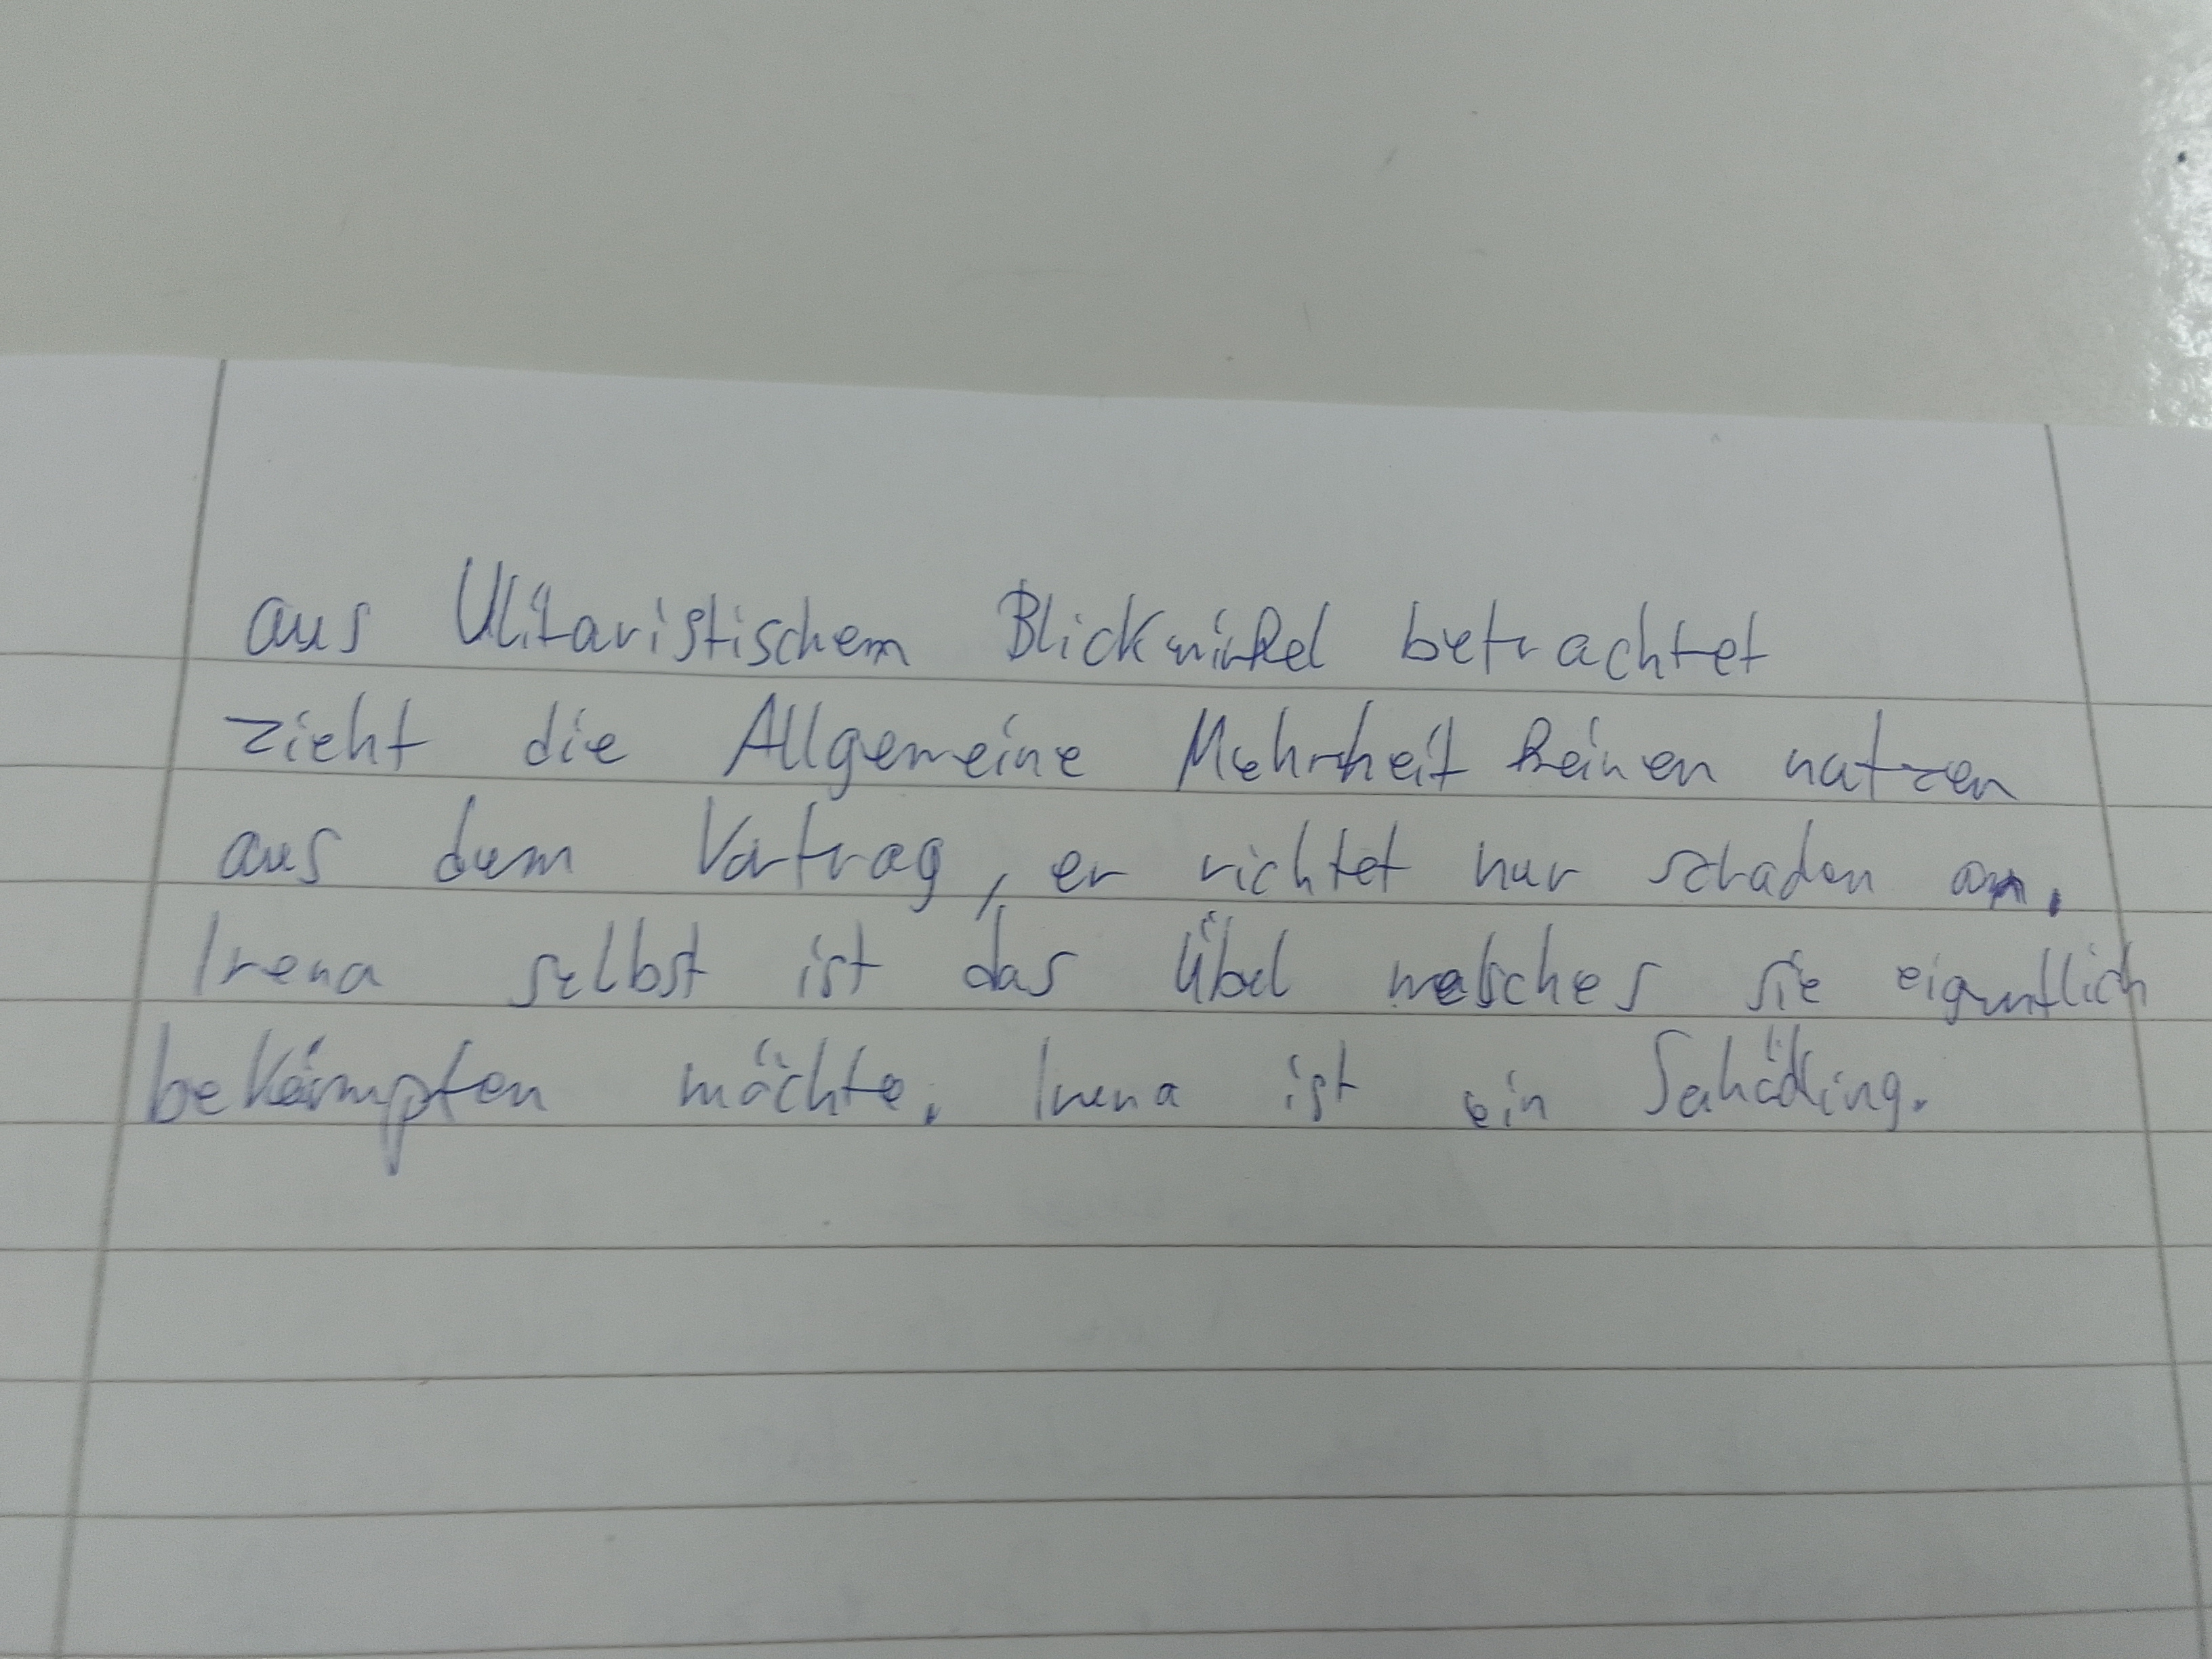 aus Ulitaristischem Blickwinkel betrachtet
zieht die Allgemeine Mehrheit keinen nutzen
aus dem Vortrag, er richtet nur schaden an.
Irena selbst ist das Übel welches sie eigentlich
bekämpfen möchte. Irena ist ein Schädling.